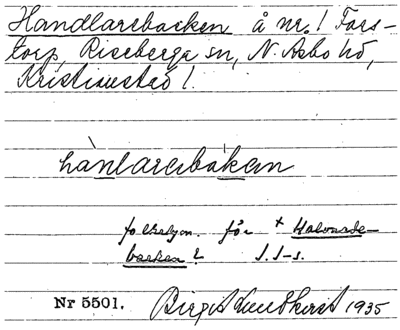 Handlarebacken å nr. 1 Fors-
torp, Riseberga sn, N. Åsbo hd,
Kristianstad l.
hànlarebáken
folketym. för + Halvarde-
backen? J. J-s.
Nr 5501. Birgit Lundkvist 1935